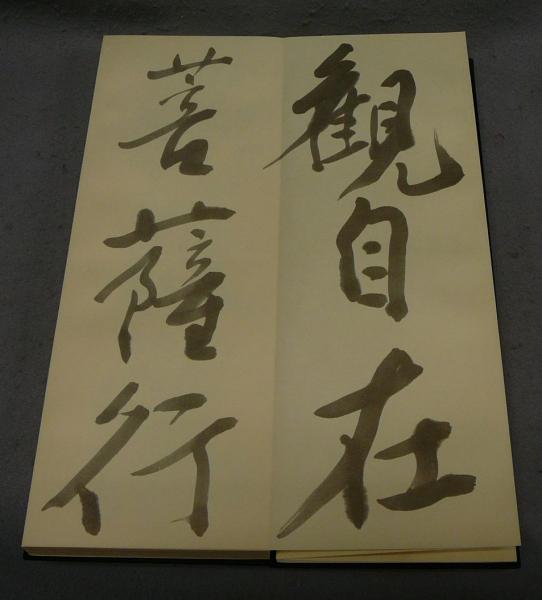 觀自在
菩薩行